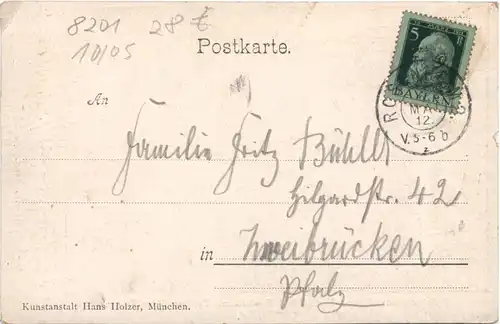 8201 28 €
10/05
Postkarte.
5
BAYERN
MAI
12.
V. 5-6
An
Familie Fritz Bühler
Hilgardstr. 42
in Zweibrücken
Pfalz
Kunstanstalt Hans Holzer, München.